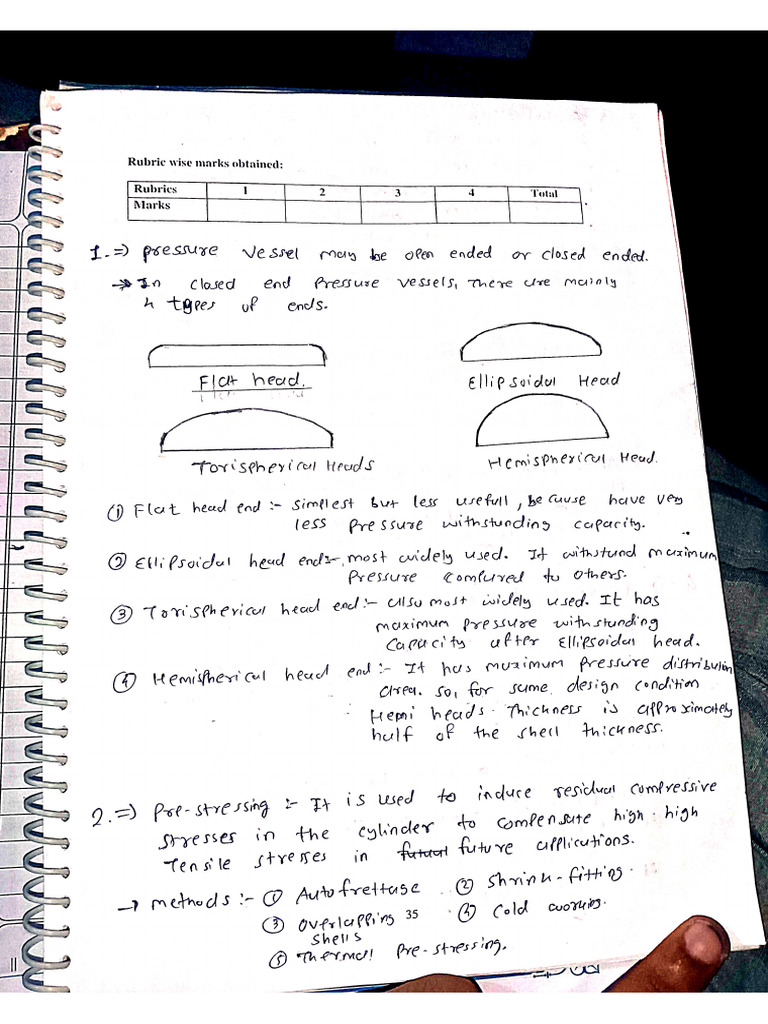 Rubric wise marks obtained:
Rubrics 1 2 3 4 Total
Marks
1. ⇒ Pressure vessel may be open ended or closed ended.
→ In closed end Pressure vessels, There are mainly
4 types of ends.
Flat head.
Ellipsoidal Head
Torispherical Heads
Hemispherical Head.
① Flat head end :- Simplest but less usefull, because have very
less pressure withstanding capacity.
② Ellipsoidal head end:- most widely used. It withstand maximum
Pressure compared to others.
③ Torispherical head end:- also most widely used. It has
maximum pressure withstanding
capacity after Ellipsoidal head.
④ Hemispherical head end:- It has maximum pressure distribution
area. so, for same design condition
Hemi heads. Thickness is approximately
half of the shell thickness.
2. ⇒ Pre-stressing :- It is used to induce residual compressive
stresses in the cylinder to compensate high high
Tensile stresses in future applications.
→ methods :- ① Autofrettage ② Shrink-fitting.
③ overlapping 35 ④ Cold working.
shells
⑤ Thermal Pre-stressing.